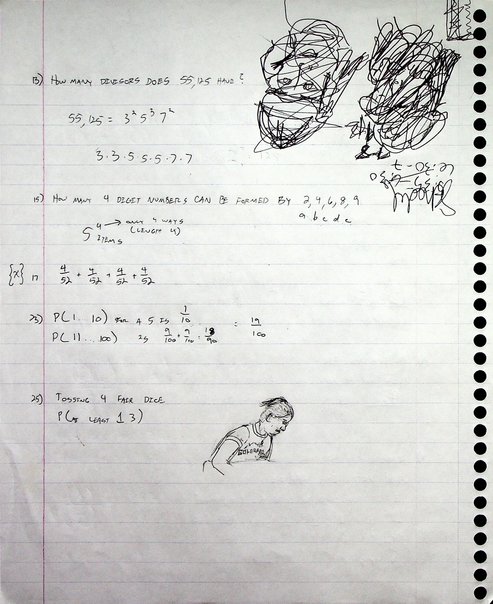 13) HOW MANY DIVISORS DOES 55,125 HAVE?
55,125 = 3² 5³ 7²
3·3·5·5·5·7·7
15) HOW MANY 4 DIGIT NUMBERS CAN BE FORMED BY 2,4,6,8,9
a b c d e
5⁴ → ONLY 4 WAYS
(LENGTH 4)
ITEMS
{x} 17 4/52 + 4/52 + 4/52 + 4/52
23) P(1...10) FOR A 5 IS 1/10 = 19/100
P(11...100) IS 9/100 + 9/90 = 18/90
25) TOSSING 4 FAIR DICE
P(AT LEAST 1 3)